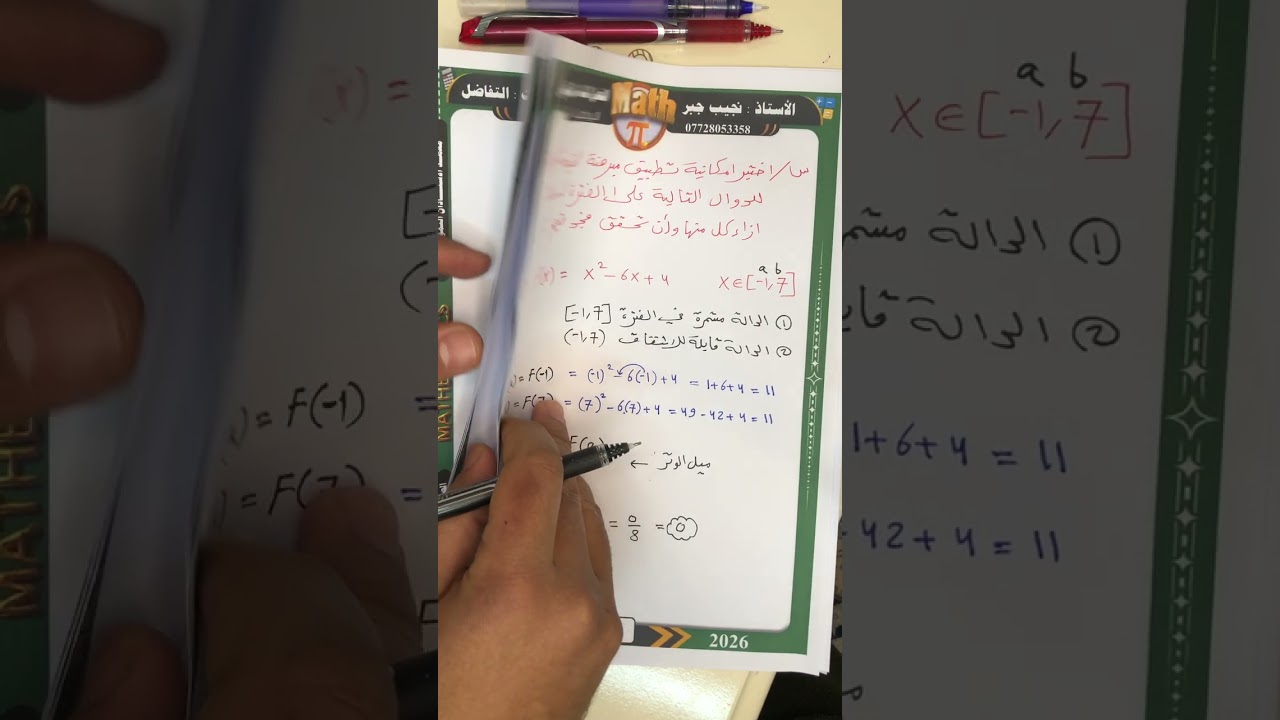 الأستاذ : نجيب جبر
Math
π
07728053358
: التفاضل
س/ اختبر امكانية تطبيق مبرهنة
للدوال التالية على الفترة
ازاء كل منها وأن تحقق
a b
(x) = x² - 6x + 4 X ∈ [-1, 7]
① الدالة مستمرة في الفترة [-1, 7]
② الدالة قابلة للاشتقاق (-1, 7)
= F(-1) = (-1)² - 6(-1) + 4 = 1 + 6 + 4 = 11
= F(7) = (7)² - 6(7) + 4 = 49 - 42 + 4 = 11
ميل الوتر ←
= 0/8 = 0
2026